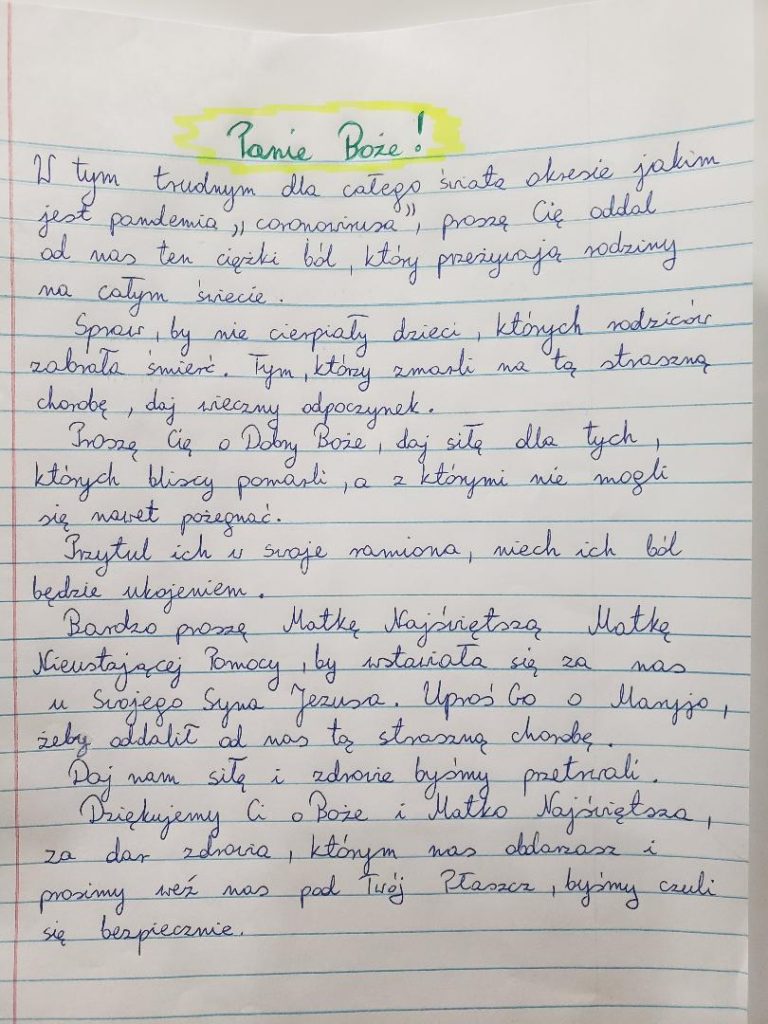 Panie Boże!
W tym trudnym dla całego świata okresie jakim
jest pandemia „coronowirusa”, proszę Cię oddal
od nas ten ciężki ból, który przeżywają rodziny
na całym świecie.
Spraw, by nie cierpiały dzieci, których rodziców
zabrała śmierć. Tym, którzy zmarli na tą straszną
chorobę, daj wieczny odpoczynek.
Proszę Cię o Dobry Boże, daj siłę dla tych,
których bliscy pomarli, a z którymi nie mogli
się nawet pożegnać.
Przytul ich w swoje ramiona, niech ich ból
będzie ukojeniem.
Bardzo proszę Matkę Najświętszą Matkę
Nieustającej Pomocy, by wstawiała się za nas
u Swojego Syna Jezusa. Uproś Go o Maryjo,
żeby oddalił od nas tą straszną chorobę.
Daj nam siłę i zdrowie byśmy przetrwali.
Dziękujemy Ci o Boże i Matko Najświętsza,
za dar zdrowia, którym nas obdarzasz i
prosimy weź nas pod Twój Płaszcz, byśmy czuli
się bezpiecznie.